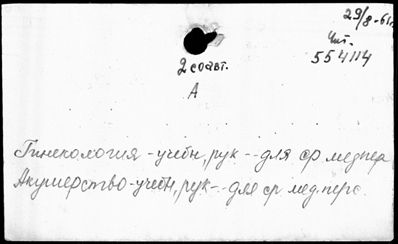 29/8-61г
Чит.
554114
2 соавт.
А
Гинекология - учебн, рук - - для ср медпер
Акушерство - учебн, рук - - для ср. мед. перс.